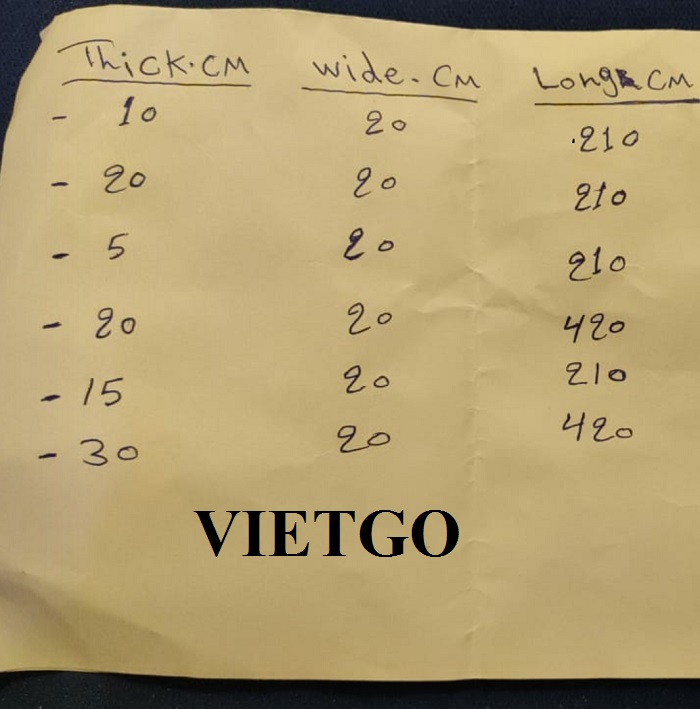 Thick.CM wide.CM Long CM
- 10 20 210
- 20 20 210
- 5 20 210
- 20 20 420
- 15 20 210
- 30 20 420
VIETGO